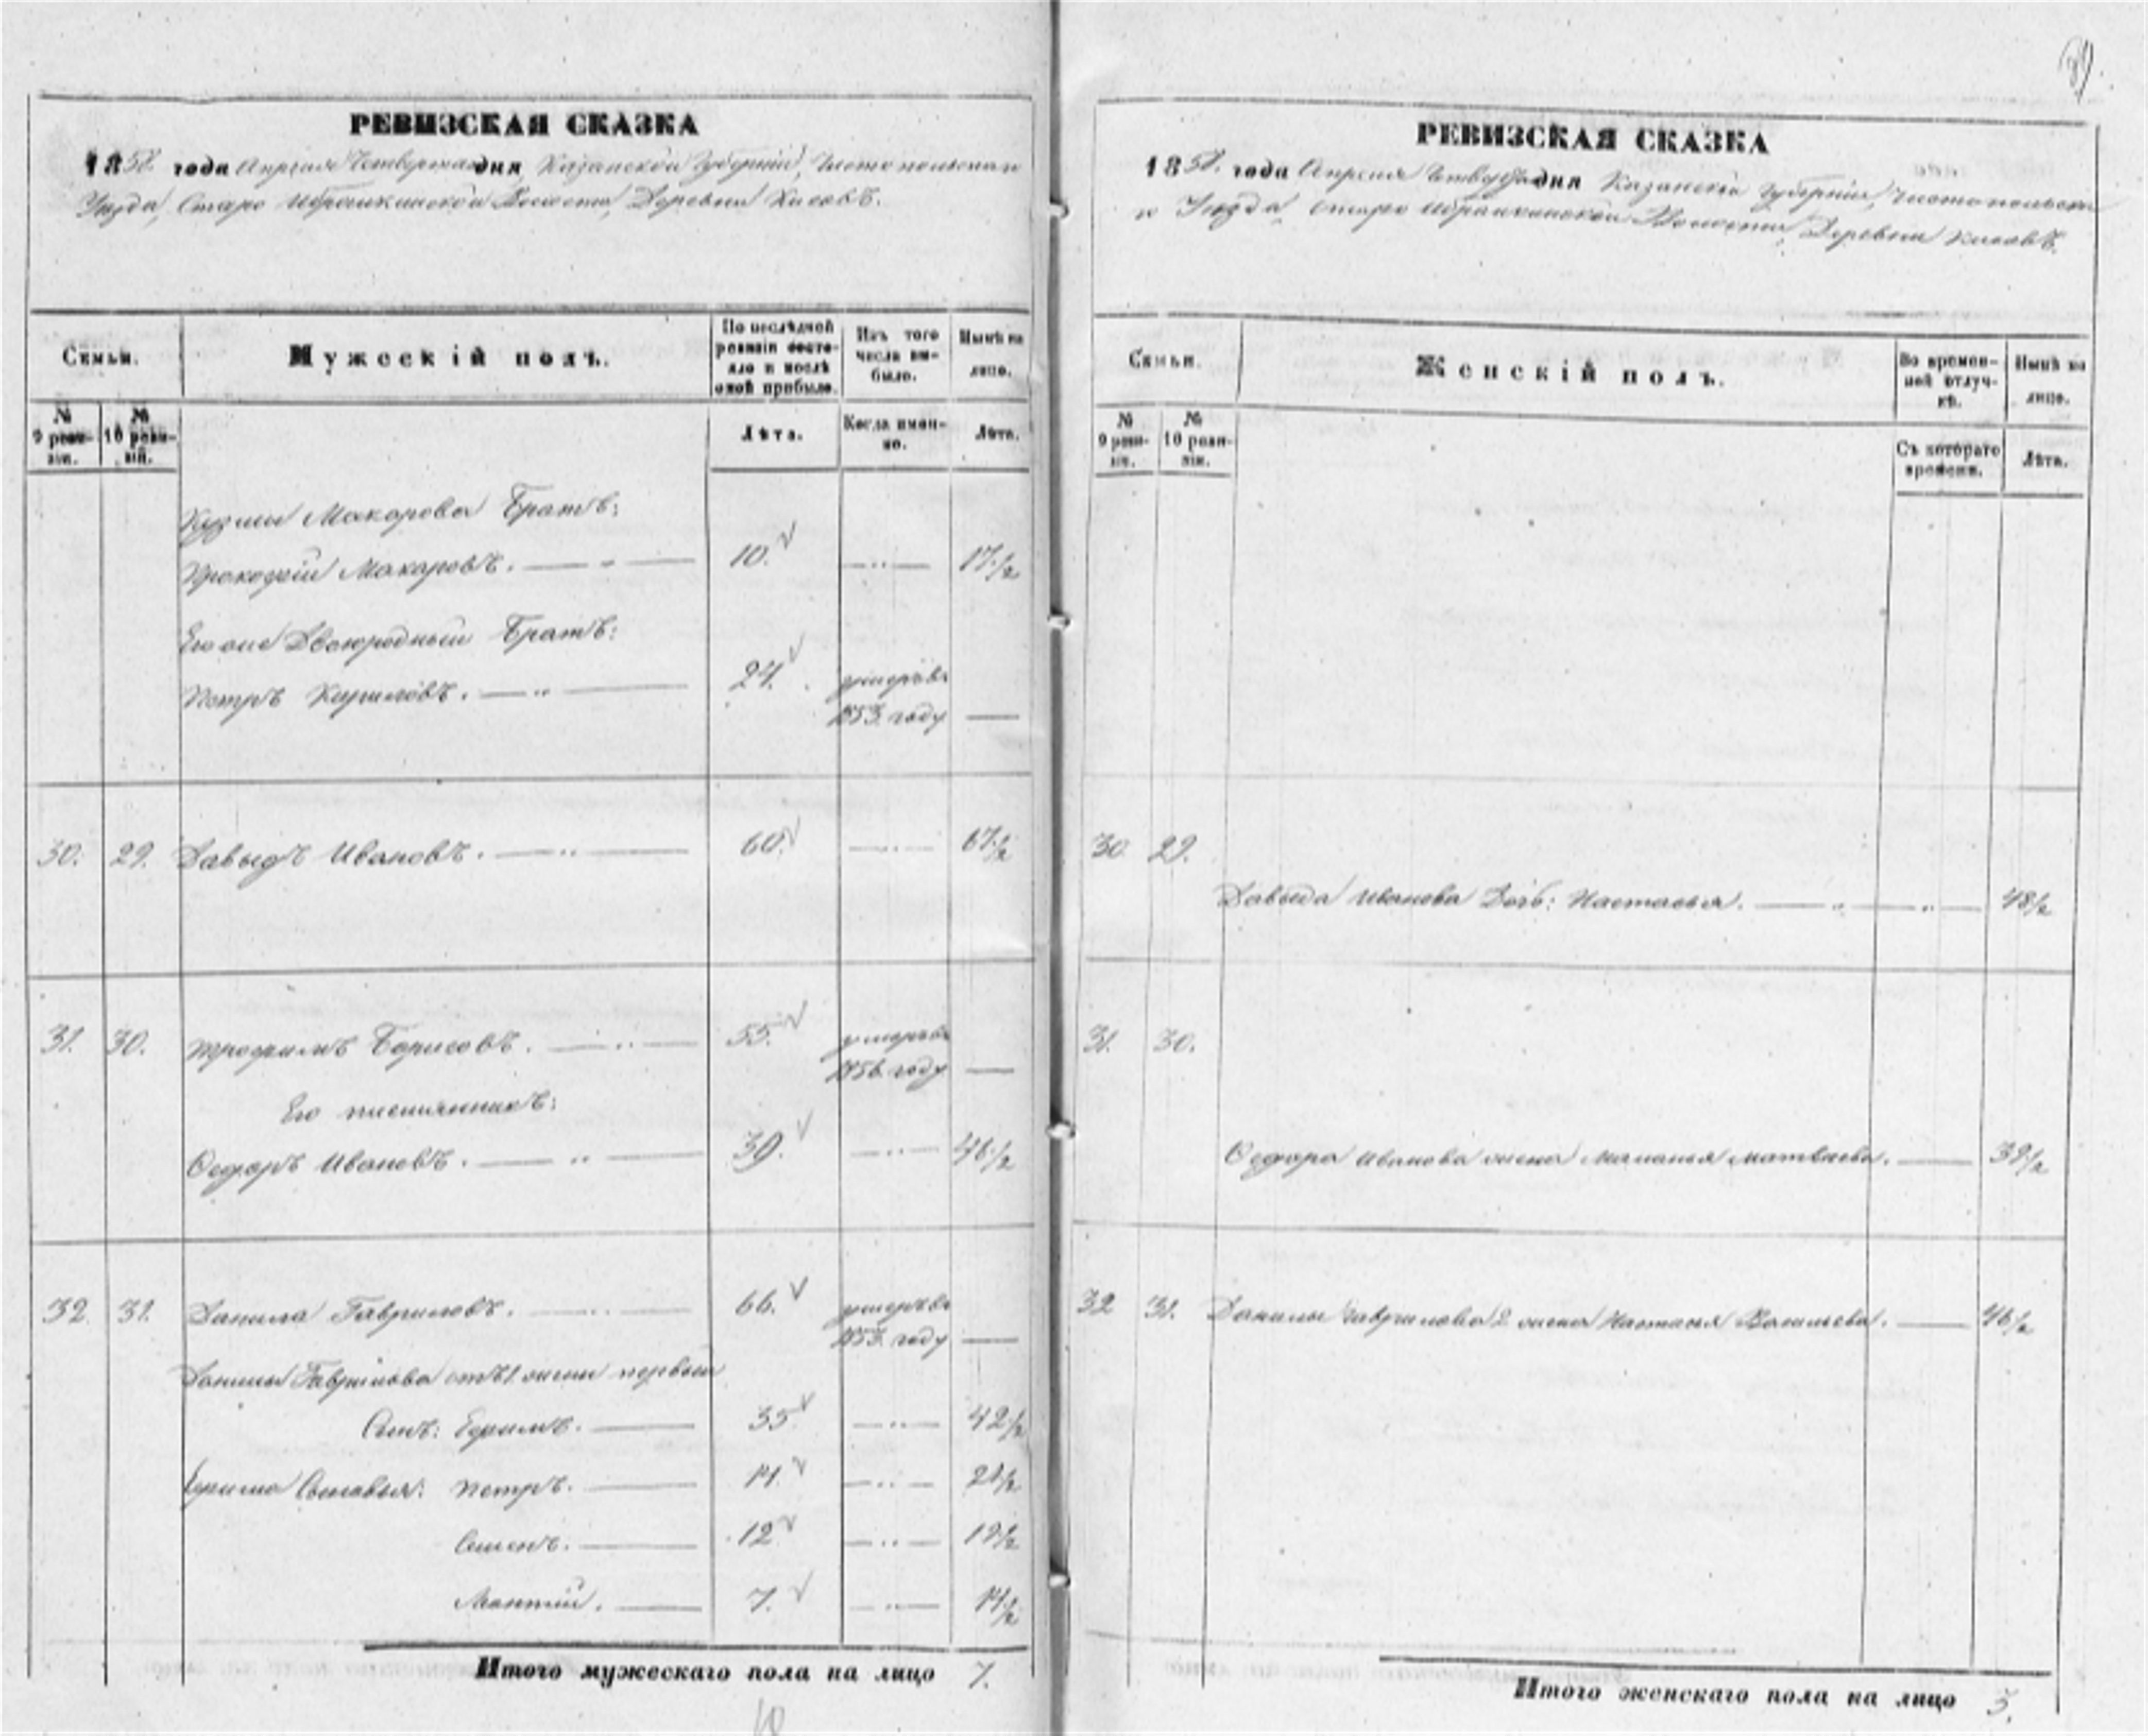 РЕВИЗСКАЯ СКАЗКА
1858 года Апреля Четвертаго дня Казанской Губернии, Чистопольскаго
Уезда, Старо Ибрайкинской Волости, Деревни
Семьи.
Мужескій полъ.
По послѣдней ревизіи состояло и послѣ оной прибыло.
Изъ того числа выбыло.
Нынѣ на лицо.
№ 9 ревизіи.
№ 10 ревизіи.
Лѣта.
Когда именно.
Лѣта.
Кузмы Макарова Братъ:
Прокофій Макаровъ. 10. 17½
Его же Двоюродный Братъ:
Петръ Кириловъ. 24. умеръ въ
1853. году
30. 29. Давыдъ Ивановъ. 60. 67½
31. 30. Трофимъ Борисовъ. 55. умеръ въ
1856. году
Его племянникъ:
Федоръ Ивановъ. 39. 46½
32. 31. Данила Гавриловъ. 66. умеръ въ
1853. году
Данилы Гаврилова отъ 1 жены первый
Сынъ: Ефимъ. 35 42½
Ефима Сыновья: Петръ. 14. 21½
Семенъ. 12 19½
7. 14½
Итого мужескаго пола на лицо 7.
10
РЕВИЗСКАЯ СКАЗКА
1858. года Апреля дня Казанской Губерніи, Чистопольска
го Уезда, Старо Ибрайкинской Волости, Деревни
Семьи.
Женскій полъ.
Во временной отлучкѣ.
Нынѣ на лицо.
№ 9 ревизіи.
№ 10 ревизіи.
Съ котораго времени.
Лѣта.
30 29.
Давыда Иванова Дочь: Настасья. 48½
31. 30.
Федора Иванова жена Маланья Матвеева. 39½
32 31. Данилы Гаврилова 2 жена Настасья Васильева. 46½
Итого женскаго пола на лицо 3.